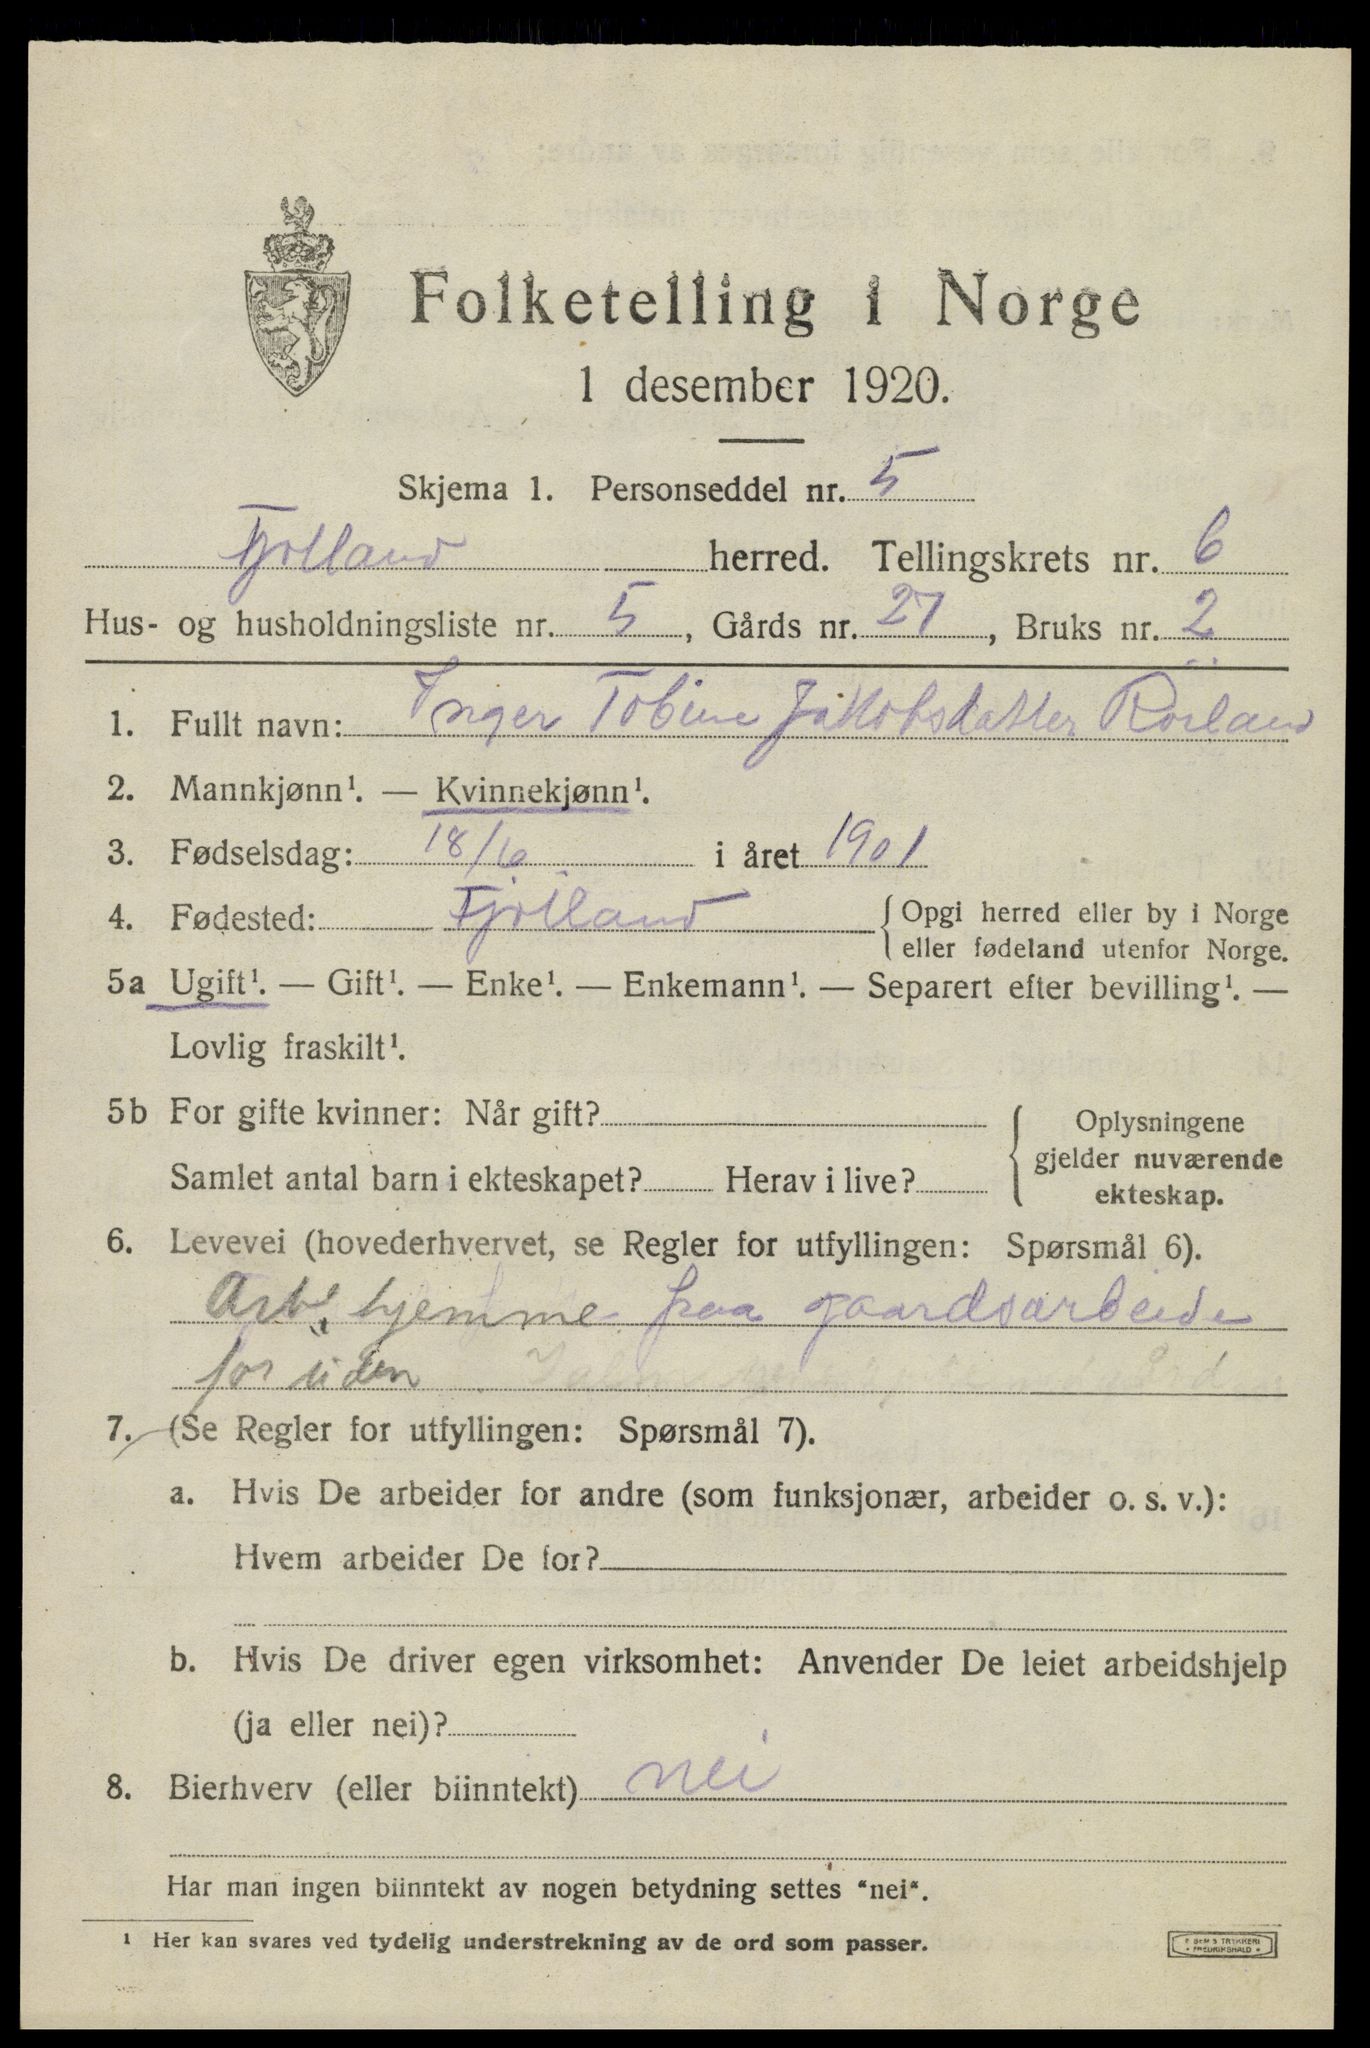 Folketelling i Norge
1 desember 1920.
Skjema 1. Personseddel nr. 5
Fjotland herred. Tellingskrets nr. 6
Hus- og husholdningsliste nr. 5, Gårds nr. 27, Bruks nr. 2
1. Fullt navn: Inger Tobine Jakobsdatter Röiland
2. Mannkjønn¹. — Kvinnekjønn¹.
3. Fødselsdag: 18/6 i året 1901
4. Fødested: Fjotland { Opgi herred eller by i Norge
eller fødeland utenfor Norge.
5a Ugift¹. — Gift¹. — Enke¹. — Enkemann¹. — Separert efter bevilling¹. —
Lovlig fraskilt¹.
5b For gifte kvinner: Når gift? { Oplysningene
gjelder nuværende
Samlet antal barn i ekteskapet? Herav i live?
ekteskap.
6. Levevei (hovederhvervet, se Regler for utfyllingen: Spørsmål 6).
Arb. hjemme paa gaardsarbeide
for uden
7. (Se Regler for utfyllingen: Spørsmål 7).
a. Hvis De arbeider for andre (som funksjonær, arbeider o. s. v.):
Hvem arbeider De for?
b. Hvis De driver egen virksomhet: Anvender De leiet arbeidshjelp
(ja eller nei)?
8. Bierhverv (eller biinntekt) nei
Har man ingen biinntekt av nogen betydning settes "nei".
¹ Her kan svares ved tydelig understrekning av de ord som passer.
TRYKKERI
FREDRIKSHALD